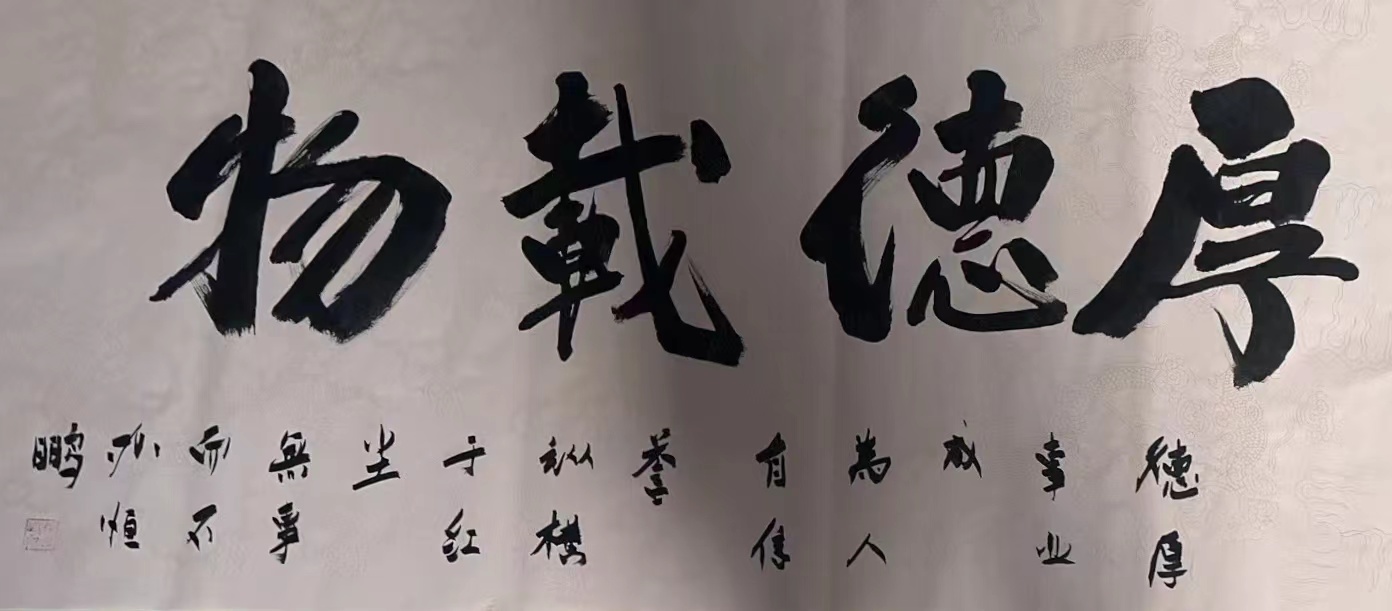 厚德載物
德厚
事业
成
為人
有信
誉
纵横
于红
尘
無事
而不
恒
鹏